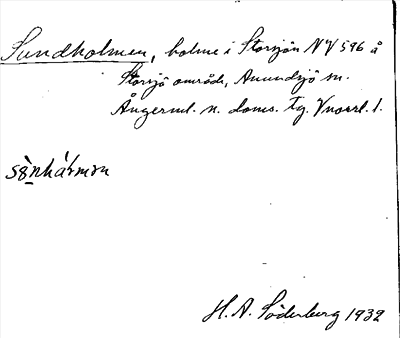 Sundholmen, holme i Storsjön NV 596 å
Storsjö område, Anundsjö sn.
Ångerml. n. doms. tg. Vnorrl. l.
sö̀nhá̀rmɘn
H. A. Söderberg 1932